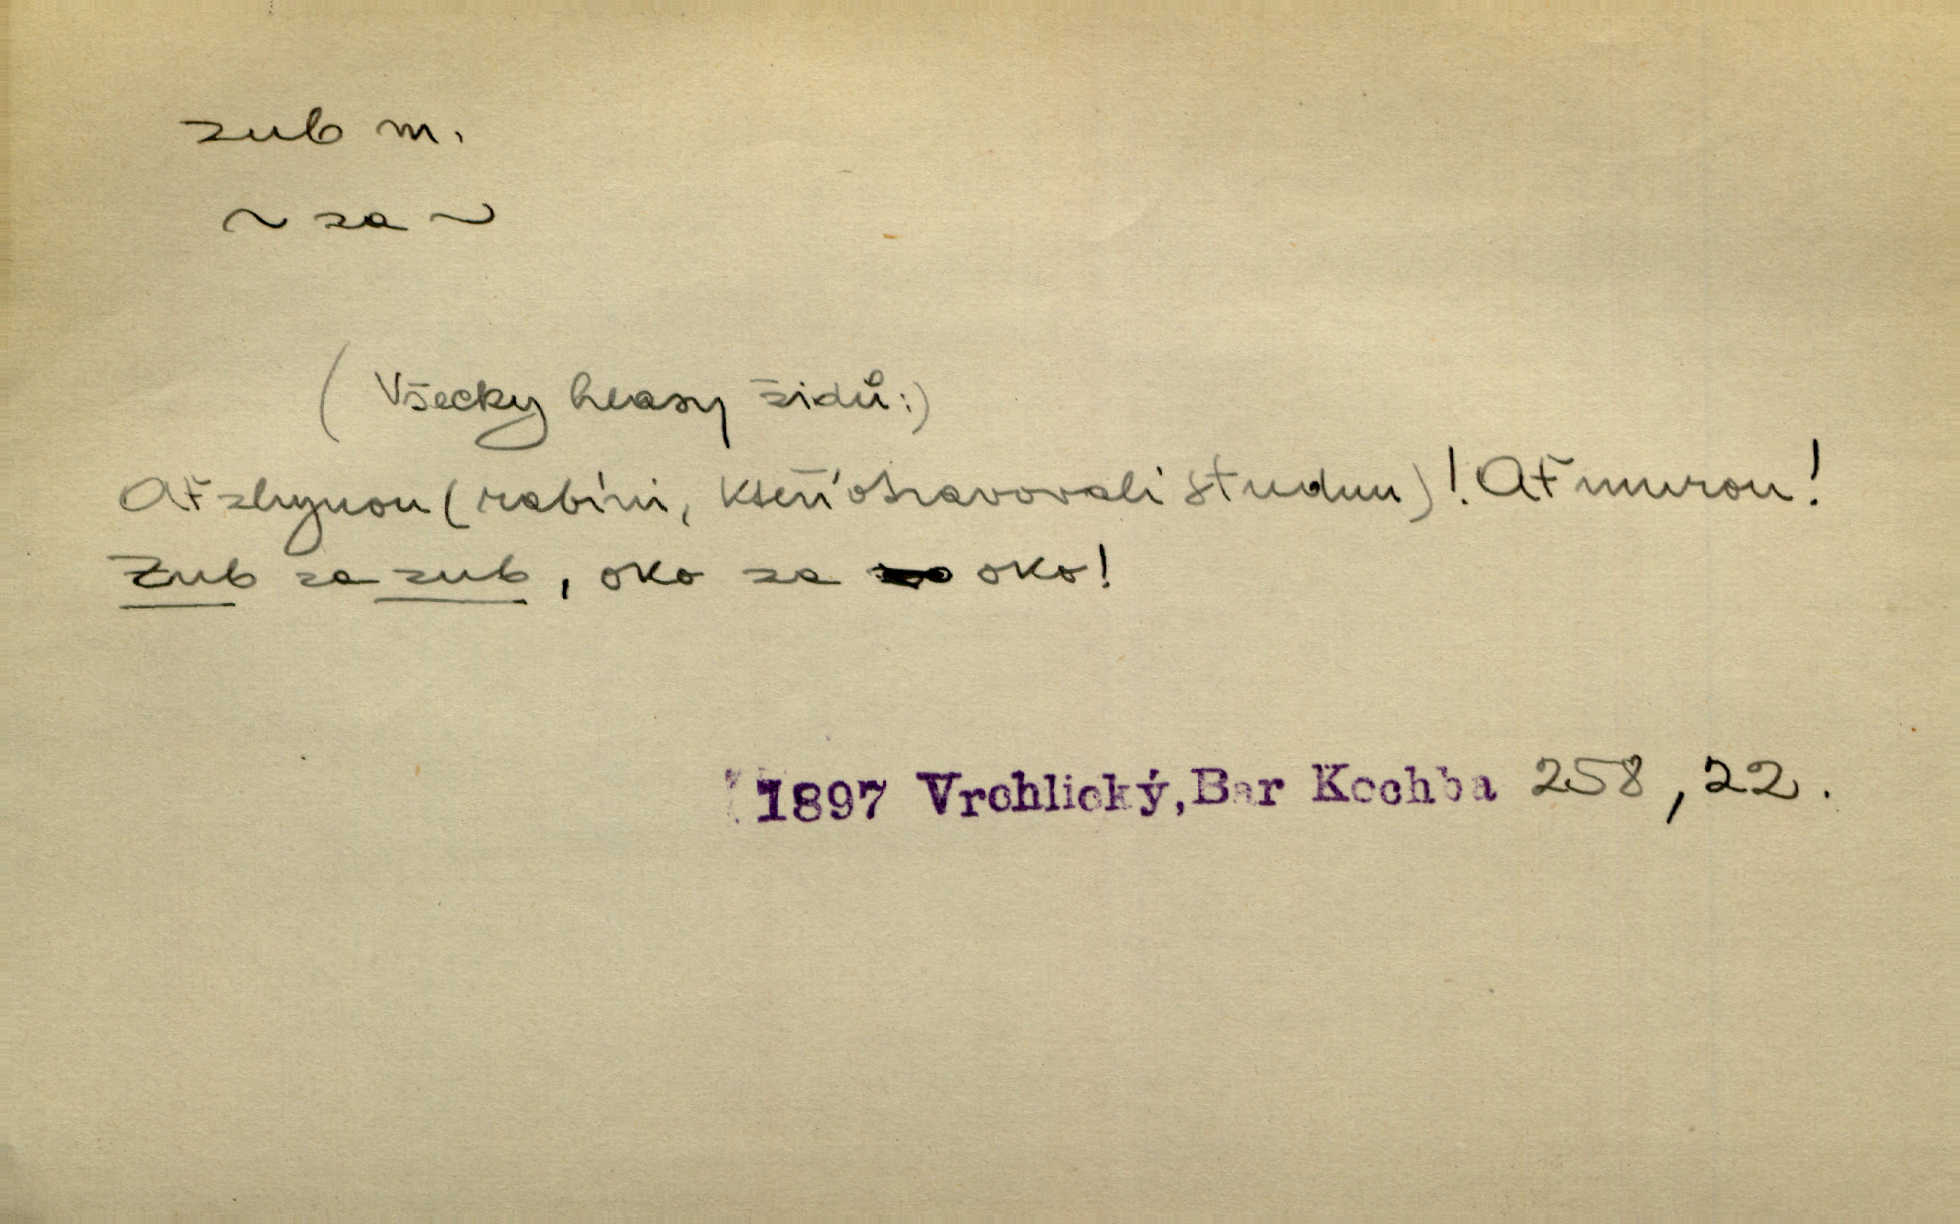 zub m.
~ za ~
(Všecky hlasy židů:)
Ať zhynou (rabíni, kteří otravovali studnu)! Ať mrou!
Zub za zub, oko za oko!
1897 Vrchlický, Bar Kochba 258, 22.